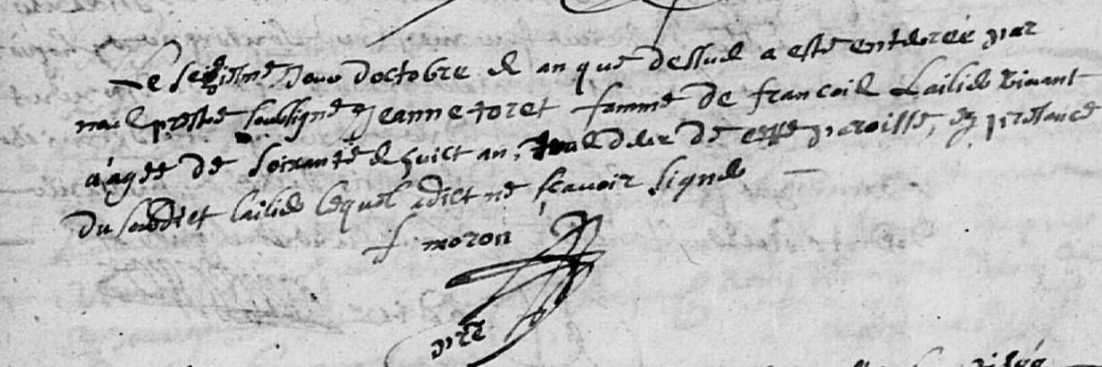 Le seiziesme jour d'octobre et an que dessus a esté enterrée par
nous prestre soubsigné Jeanne toret famme de francois Lailier vivant
aâgée de soixante et huict ans, de cette paroisse, en presance
du susdict lailier lequel a dict ne scavoir signer
f. moron
ptre